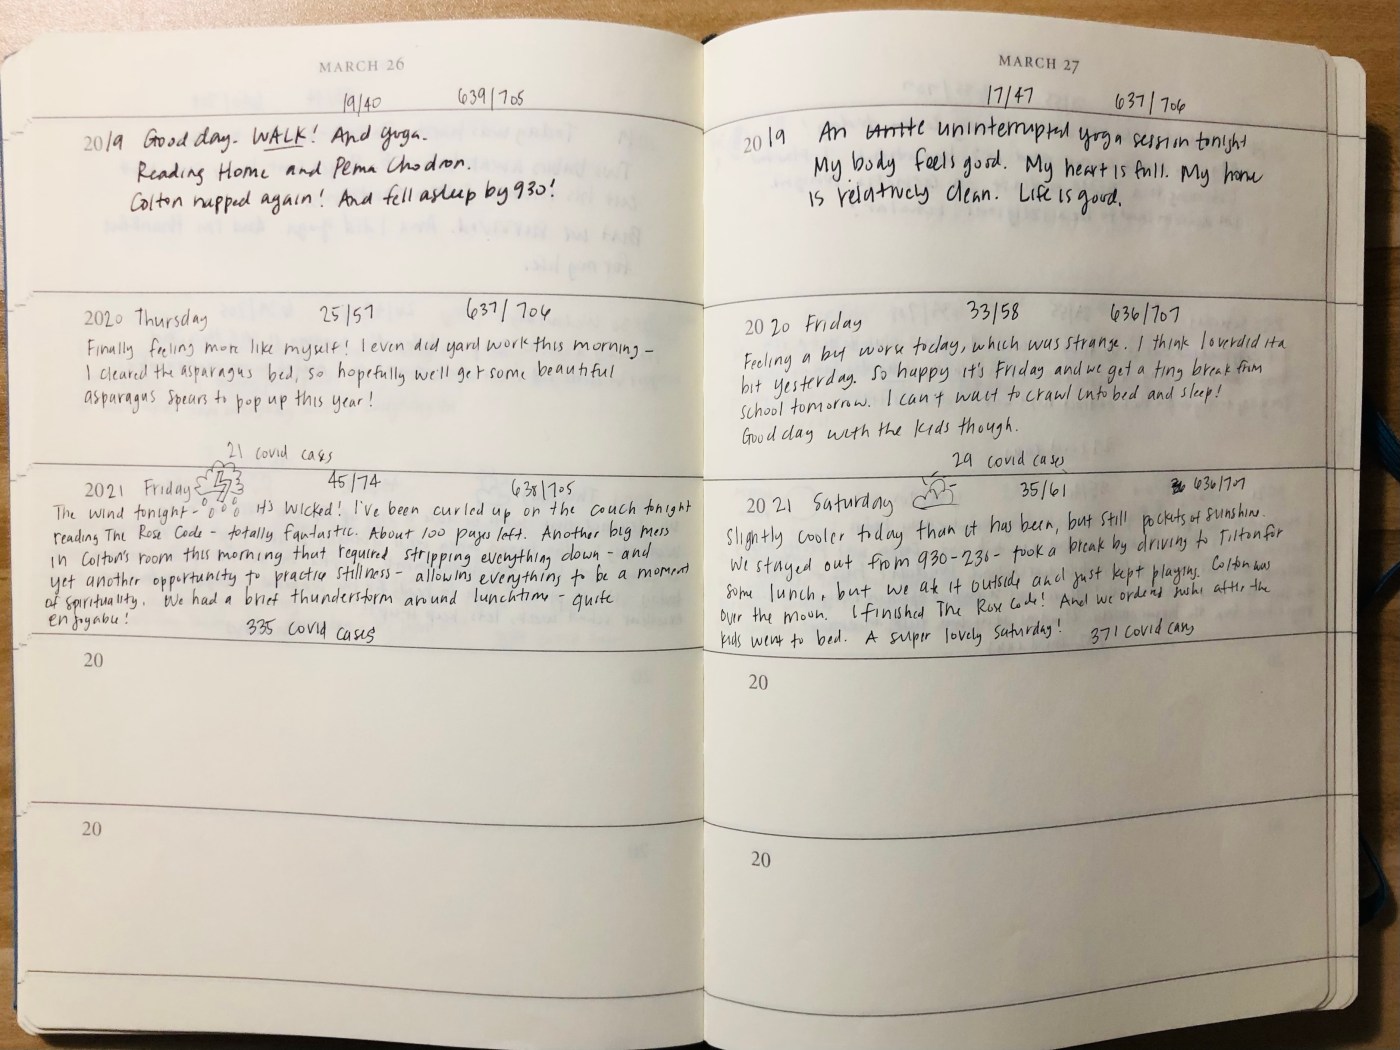 MARCH 26
19/40 639/705
2019 Good day. WALK! And yoga.
Reading Home and Pema Chodron.
Colton napped again! And fell asleep by 930!
2020 Thursday 25/57 637/706
Finally feeling more like myself! I even did yard work this morning -
I cleared the asparagus bed, so hopefully we'll get some beautiful
asparagus spears to pop up this year!
21 covid cases
2021 Friday 45/74 638/705
The wind tonight - it's wicked! I've been curled up on the couch tonight
reading The Rose Code - totally fantastic. About 100 pages left. Another big mess
in Colton's room this morning that required stripping everything down - and
yet another opportunity to practice stillness - allowing everything to be a moment
of spirituality. We had a brief thunderstorm around lunchtime - quite
enjoyable! 335 covid cases
20
20
MARCH 27
17/47 637/706
2019 An uninterrupted yoga session tonight
My body feels good. My heart is full. My home
is relatively clean. Life is good.
2020 Friday 33/58 636/707
Feeling a bit worse today, which was strange. I think I overdid it a
bit yesterday. So happy it's Friday and we get a tiny break from
school tomorrow. I can't wait to crawl into bed and sleep!
Good day with the kids though.
29 covid cases
2021 Saturday 35/61 636/707
Slightly cooler today than it has been, but still pockets of sunshine.
We stayed out from 930-230 - took a break by driving to Tilton for
some lunch, but we ate it outside and just kept playing. Colton was
over the moon. I finished The Rose Code! And we ordered sushi after the
kids went to bed. A super lovely Saturday! 371 covid cases
20
20